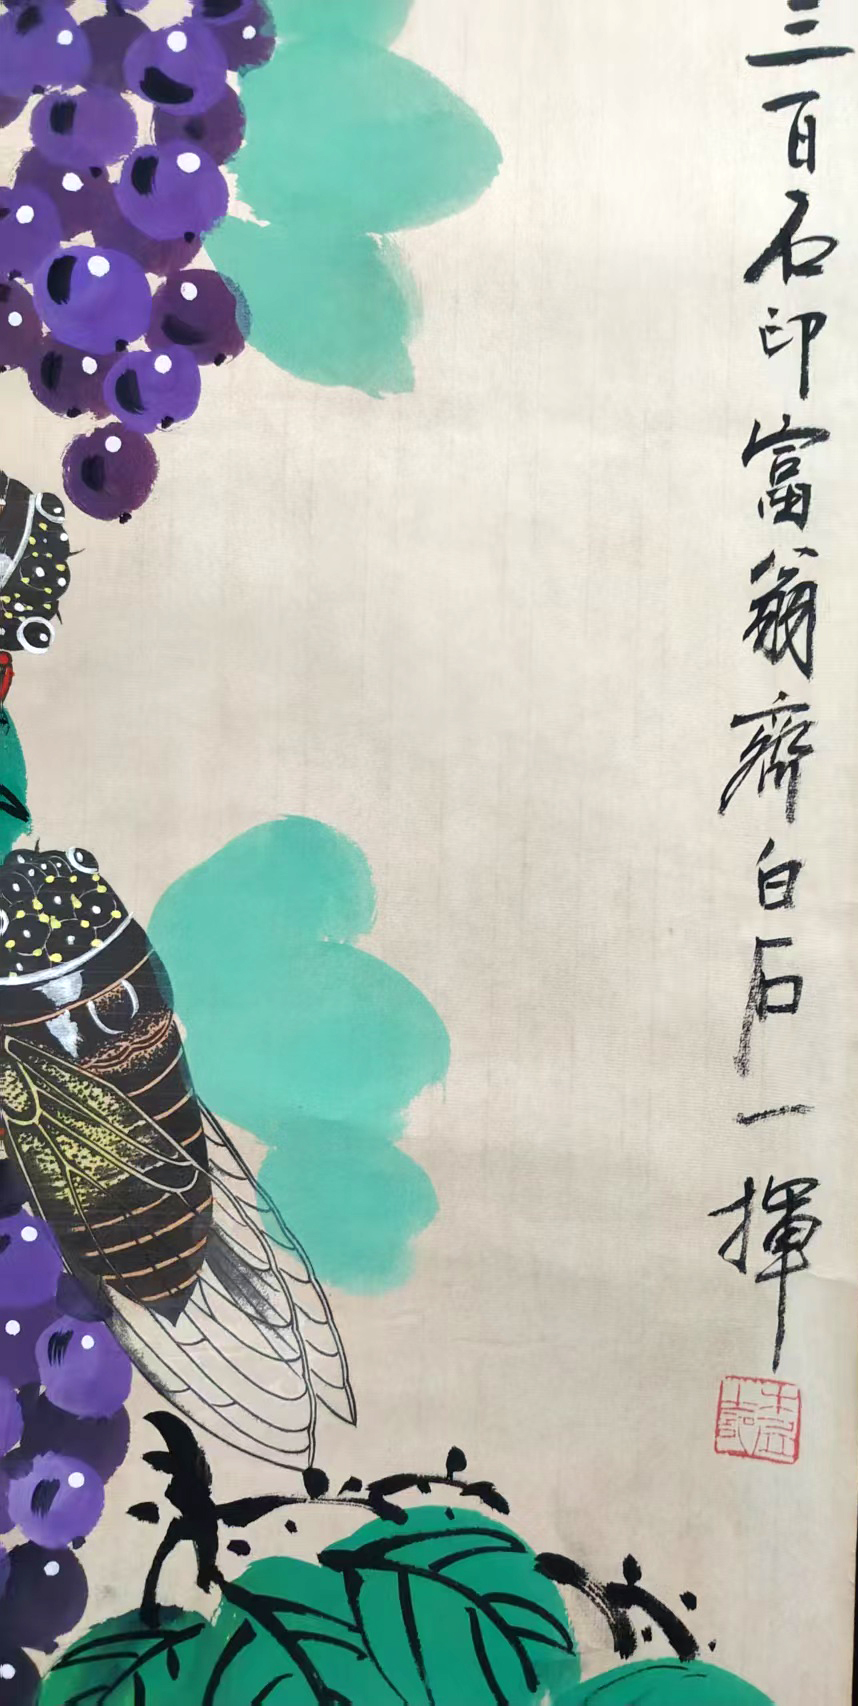 三百石印富翁齊白石一揮